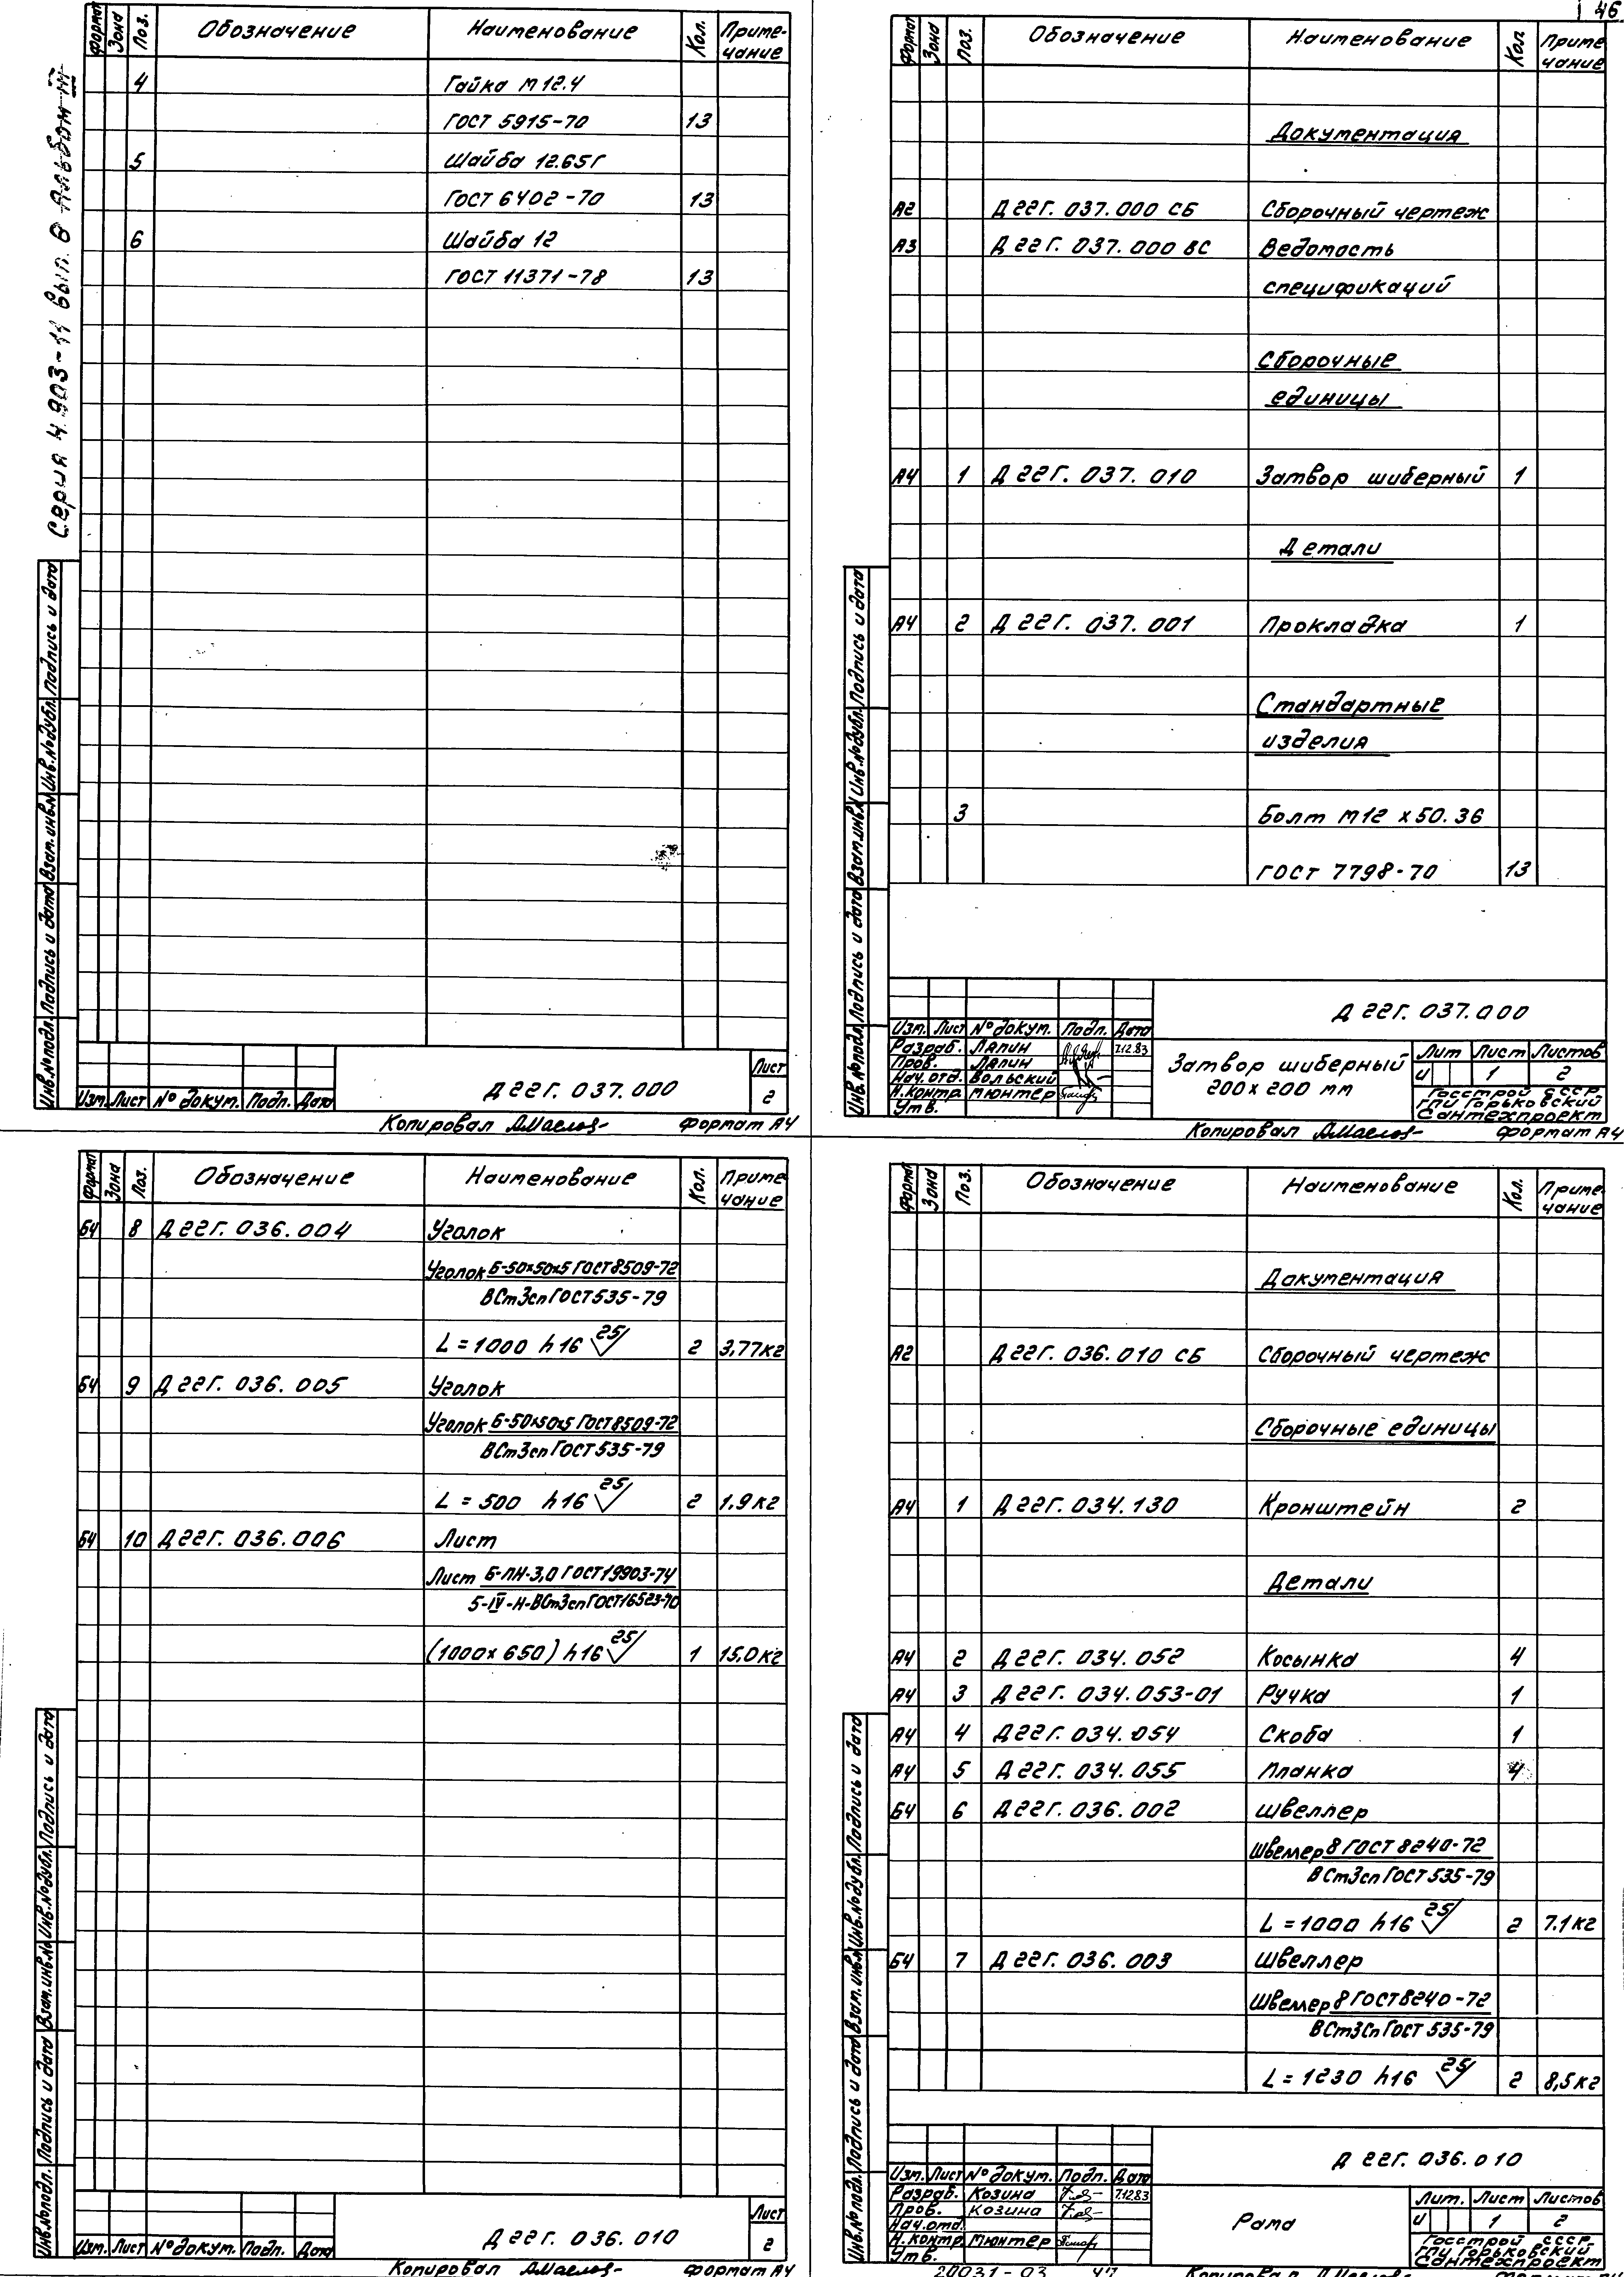 46
Серия 4.903-11 вып. 8 Альбом III
Формат Зона Поз. Обозначение Наименование Кол. Приме-
чание
4 Гайка М12.4
ГОСТ 5915-70 13
5 Шайба 12.65Г
ГОСТ 6402-70 13
6 Шайба 12
ГОСТ 11371-78 13
Инв.№подл. Подпись и дата Взам.инв.№ Инв.№дубл. Подпись и дата
Изм. Лист № докум. Подп. Дата
Д 22Г. 037.000
Лист
2
Копировал
Формат А4
Формат Зона Поз. Обозначение Наименование Кол Приме
чание
Документация
А2 Д 22Г. 037.000 СБ Сборочный чертеж
А3 Д 22Г. 037.000 ВС Ведомость
спецификаций
Сборочные
единицы
А4 1 Д 22Г. 037.010 Затвор шиберный 1
Детали
А4 2 Д 22Г. 037.001 Прокладка 1
Стандартные
изделия
3 Болт М12 х 50.36
ГОСТ 7798-70 13
Инв.№подл. Подпись и дата Взам.инв.№ Инв.№дубл. Подпись и дата
Д 22Г. 037.000
Изм. Лист № докум. Подп. Дата
Разраб. Ляпин 7.12.83
Пров. Ляпин
Нач.отд. Вольский
Н.контр. Мюнтер
Утв.
Затвор шиберный
200 х 200 мм
Лит Лист Листов
И 1 2
Госстрой СССР
ГПИ Горьковский
Сантехпроект
Копировал
Формат А4
Формат Зона Поз. Обозначение Наименование Кол. Приме-
чание
Б4 8 Д 22Г. 036.004 Уголок
Уголок Б-50х50х5 ГОСТ 8509-72
ВСт3сп ГОСТ 535-79
L = 1000 h16 25 2 3,77кг
Б4 9 Д 22Г. 036.005 Уголок
Уголок Б-50х50х5 ГОСТ 8509-72
ВСт3сп ГОСТ 535-79
L = 500 h16 25 2 1,9 кг
Б4 10 Д 22Г. 036.006 Лист
Лист Б-ПН-3,0 ГОСТ 19903-74
5-IV-Н-ВСт3сп ГОСТ 16523-70
(1000х 650) h16 25 1 15,0 кг
Инв.№подл. Подпись и дата Взам.инв.№ Инв.№дубл. Подпись и дата
Изм. Лист № докум. Подп. Дата
Д 22Г. 036.010
Лист
2
Копировал
Формат А4
Формат Зона Поз. Обозначение Наименование Кол. Приме-
чание
Документация
А2 Д 22Г. 036.010 СБ Сборочный чертеж
Сборочные единицы
А4 1 Д 22Г. 034.130 Кронштейн 2
Детали
А4 2 Д 22Г. 034.052 Косынка 4
А4 3 Д 22Г. 034.053-01 Ручка 1
А4 4 Д 22Г. 034.054 Скоба 1
А4 5 Д 22Г. 034.055 Планка 4
Б4 6 Д 22Г. 036.002 Швеллер
Швеллер 8 ГОСТ 8240-72
ВСт3сп ГОСТ 535-79
L = 1000 h16 25 2 7.1 кг
Б4 7 Д 22Г. 036.003 Швеллер
Швеллер 8 ГОСТ 8240-72
ВСт3Сп ГОСТ 535-79
L = 1230 h16 25 2 8,5 кг
Инв.№подл. Подпись и дата Взам.инв.№ Инв.№дубл. Подпись и дата
Д 22Г. 036.010
Изм. Лист № докум. Подп. Дата
Разраб. Козина 7.12.83
Пров. Козина
Нач.отд.
Н.контр. Мюнтер
Утв.
Рама
Лит. Лист Листов
И 1 2
Госстрой СССР
ГПИ Горьковский
Сантехпроект
20031-03 47